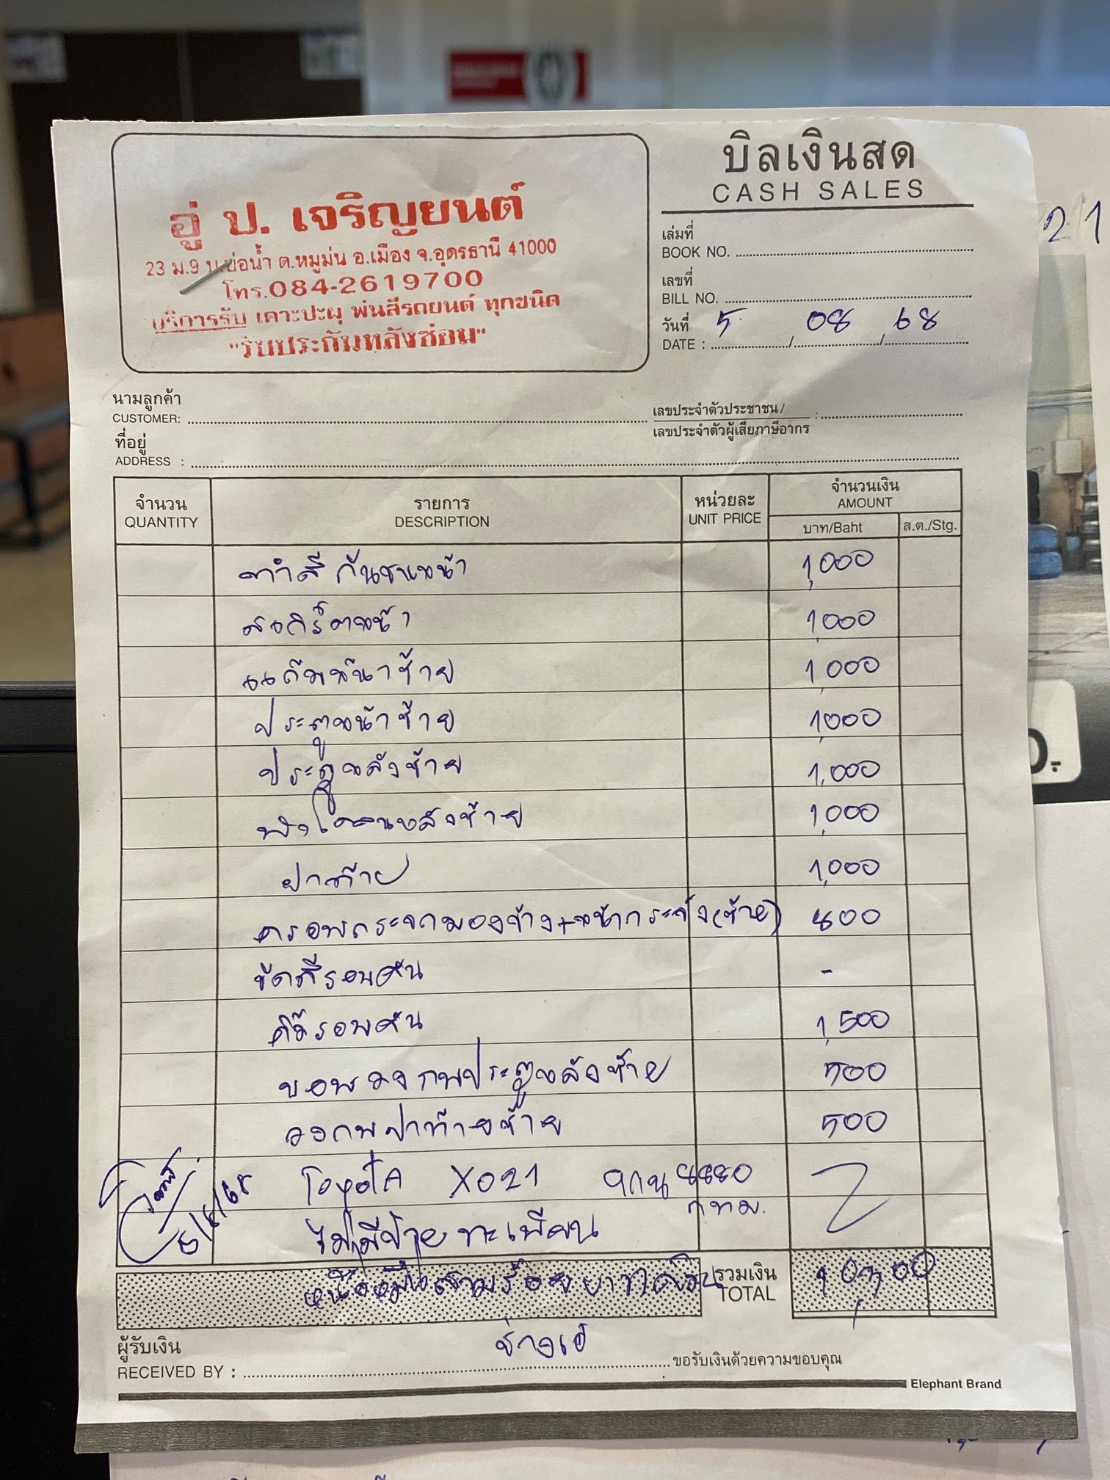 บิลเงินสด
CASH SALES
อู่ ป. เจริญยนต์
23 ม.9 บ.บ่อน้ำ ต.หมูม่น อ.เมือง จ.อุดรธานี 41000
โทร.084-2619700
บริการรับ เคาะปะผุ พ่นสีรถยนต์ ทุกชนิด
"รับประกันหลังซ่อม"
เล่มที่
BOOK NO.
เลขที่
BILL NO.
วันที่ 5 08 68
DATE : / /
21
นามลูกค้า
CUSTOMER:
เลขประจำตัวประชาชน/
เลขประจำตัวผู้เสียภาษีอากร :
ที่อยู่
ADDRESS :
จำนวน รายการ หน่วยละ จำนวนเงิน
QUANTITY DESCRIPTION UNIT PRICE AMOUNT
บาท/Baht ส.ต./Stg.
ทำสี กันชนหน้า 1,000
1,000
แก้มหน้าซ้าย 1,000
ประตูหน้าซ้าย 1,000
ประตูหลังซ้าย 1,000
บังโคลนหลังซ้าย 1,000
ฝาท้าย 1,000
ครอบกระจกมองข้าง+หน้ากระจัง(ซ้าย) 800
ขัดสีรอบคัน -
รอบคัน 1,500
ประตูหลังซ้าย 500
ฝาท้ายซ้าย 500
Toyota X021 8880
กทม.
ไม่มีป้ายทะเบียน
5/8/68
หนึ่งหมื่นสามร้อยบาทถ้วน รวมเงิน 10,300
TOTAL
ผู้รับเงิน
RECEIVED BY : ช่างเอ๋ ขอรับเงินด้วยความขอบคุณ
Elephant Brand